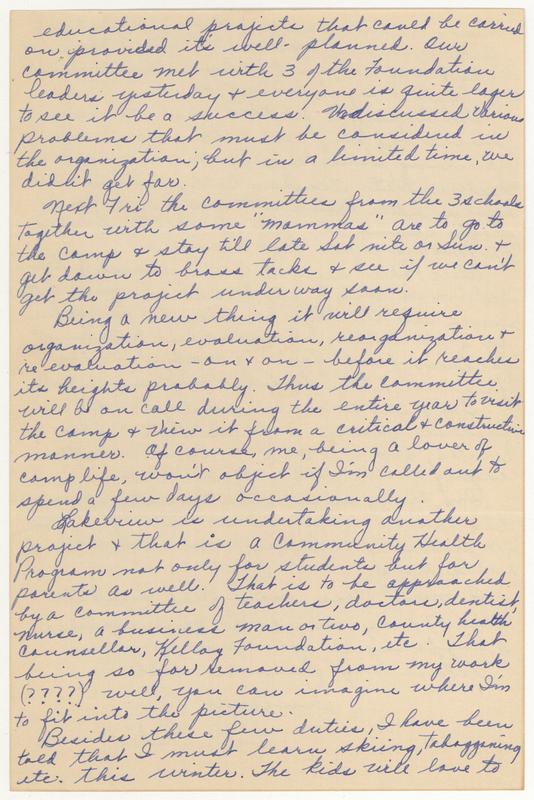 educational projects that could be carried
on provided it's well-planned. Our
committee met with 3 of the Foundation
leaders yesterday & everyone is quite eager
to see it be a success. We discussed various
problems that must be considered in
the organization, but in a limited time, we
didn't get far.
Next Fri the committees from the 3 schools
together with some "mommas" are to go to
the camp & stay till late Sat nite or Sun. &
get down to brass tacks & see if we can't
get the project under way soon.
Being a new thing it will require
organization, evaluation, reorganization &
re evaluation - on & on - before it reaches
its heights probably. Thus the committee
will be on call during the entire year to visit
the camp & view it from a critical & constructive
manner. Of course, me, being a lover of
camp life, won't object if I'm called out to
spend a few days occasionally.
Lakeview is undertaking another
project & that is a Community Health
Program not only for students but for
parents as well. That is to be approached
by a committee of teachers, doctors, dentist,
nurse, a business man or two, County health
counsellor, Kellog Foundation, etc. That
being so far removed from my work
(????) well, you can imagine where I'm
to fit into the picture.
Besides these few duties, I have been
told that I must learn skiing, tabogganing
etc. this winter. The kids will love to